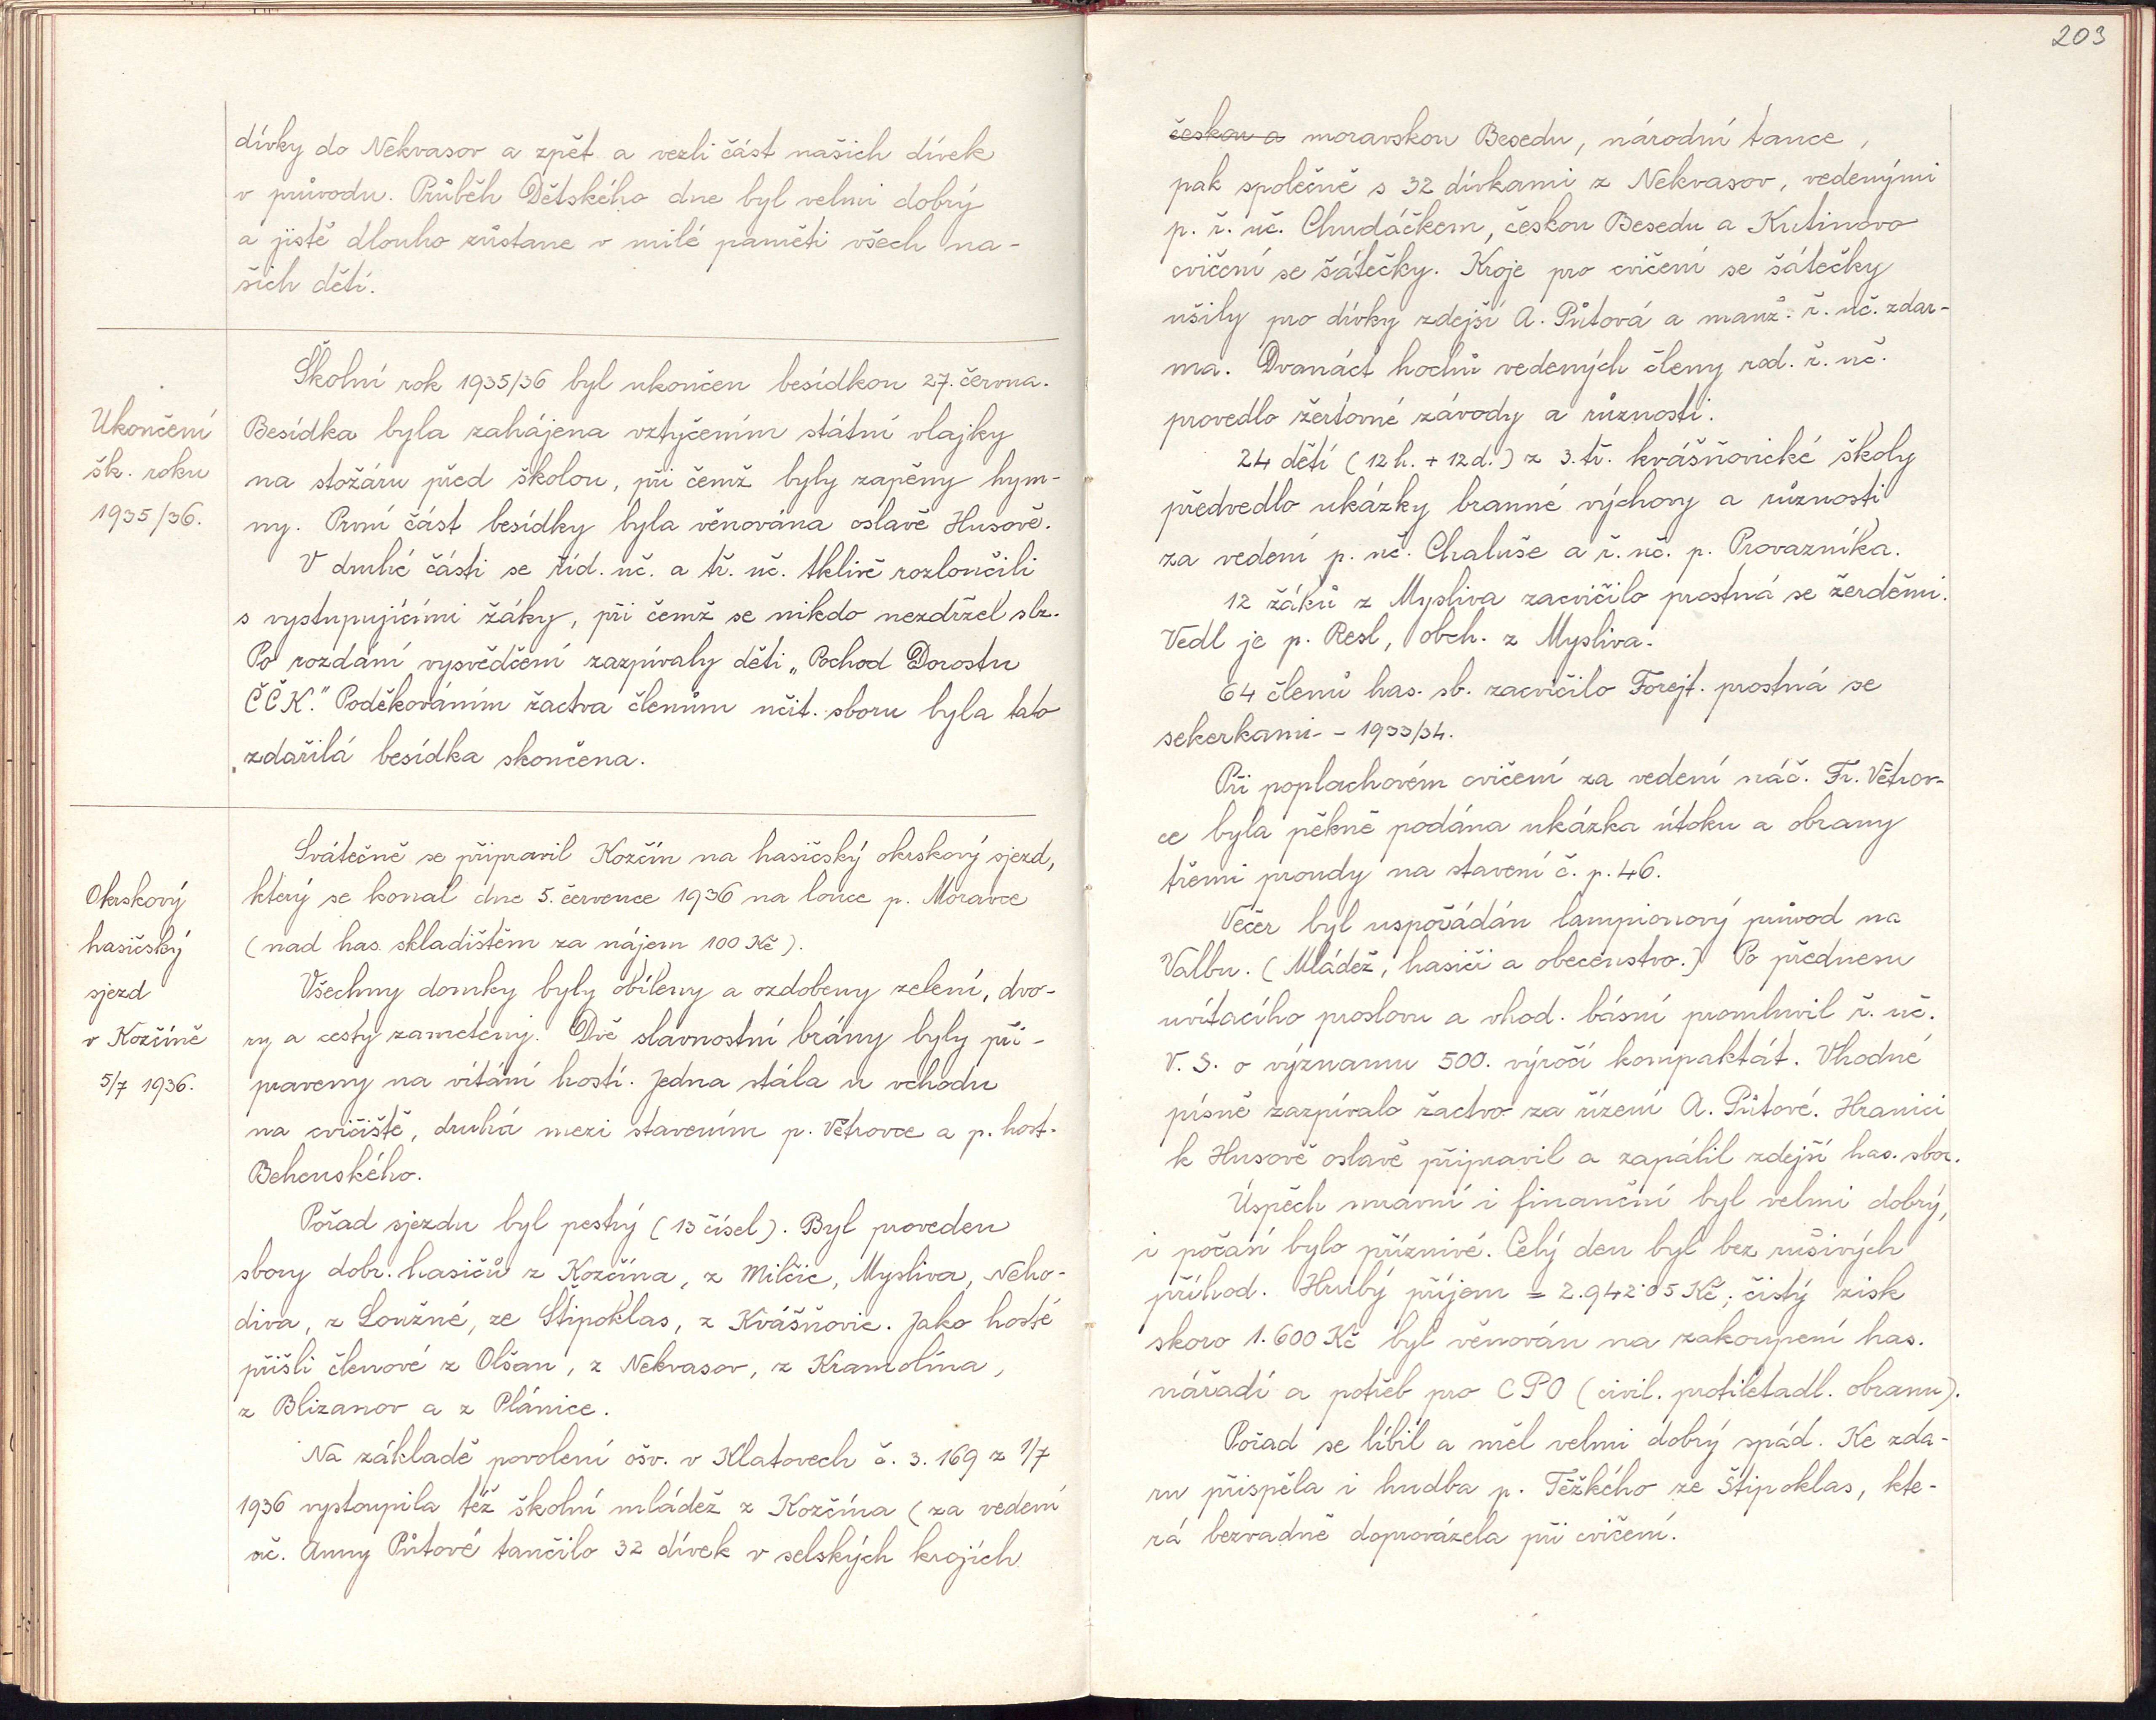 dívky do Nekvasov a zpět a vezli část našich dívek
v průvodu. Průběh Dětského dne byl velmi dobrý
a jistě dlouho zůstane v milé paměti všech na-
šich dětí.
Ukončení
šk. roku
1935/36.
Školní rok 1935/36 byl ukončen besídkou 27. června.
Besídka byla zahájena vztyčením státní vlajky
na stožáru před školou, při čemž byly zapěny hym-
ny. První část besídky byla věnována oslavě Husově.
V druhé části se říd. uč. a tř. uč. tklivě rozloučili
s vystupujícími žáky, při čemž se nikdo nezdržel slz.
Po rozdání vysvědčení zazpívaly děti „Pochod Dorostu
ČČK." Poděkováním žactva členům učit. sboru byla tato
zdařilá besídka skončena.
Okrskový
hasičský
sjezd
v Kozčíně
5/7 1936.
Svátečně se připravil Kozčín na hasičský okrskový sjezd,
který se konal dne 5. července 1936 na louce p. Moravce
(nad has. skladištěm za nájem 100 Kč).
Všechny domky byly obíleny a ozdobeny zelení, dvo-
ry a cesty zameteny. Dvě slavnostní brány byly při-
praveny na vítání hostí. Jedna stála u vchodu
na cvičiště, druhá mezi stavením p. Větrovce a p. host.
Behenského.
Pořad sjezdu byl pestrý (13 čísel). Byl proveden
sbory dobr. hasičů z Kozčína, z Milčic, Mysliva, Neho-
diva, z Loužné, ze Štipoklas, z Kvášňovic. Jako hosté
přišli členové z Olšan, z Nekvasov, z Kramolína,
z Blizanov a z Plánice.
Na základě povolení ošv. v Klatovech č. 3.169 z 1/7
1936 vystoupila též školní mládež z Kozčína (za vedení
uč. Anny Půtové tančilo 32 dívek v selských krojích
203
českou a moravskou Besedu, národní tance,
pak společně s 32 dívkami z Nekvasov, vedenými
p. ř. uč. Chudáčkem, českou Besedu a Kutinovo
cvičení se šátečky. Kroje pro cvičení se šátečky
ušily pro dívky zdejší A. Půtová a manž. ř. uč. zdar-
ma. Dvanáct hochů vedených členy rod. ř. uč.
provedlo žertovné závody a různosti.
24 dětí (12 h. + 12 d.) z 3. tř. kvášňovické školy
předvedlo ukázky branné výchovy a různosti
za vedení p. uč. Chaluše a ř. uč. p. Provazníka.
12 žáků z Mysliva zacvičilo prostná se žerděmi.
Vedl je p. Resl, obch. z Mysliva.
64 členů has. sb. zacvičilo Forejt. prostná se
sekerkami - - 1933/34.
Při poplachovém cvičení za vedení náč. Fr. Větrov-
ce byla pěkně podána ukázka útoku a obrany
třemi proudy na stavení č. p. 46.
Večer byl uspořádán lampionový průvod na
Valbu. (Mládež, hasiči a obecenstvo.) Po přednesu
uvítacího proslovu a vhod. básní promluvil ř. uč.
V. S. o významu 500. výročí kompaktát. Vhodné
písně zazpívalo žactvo za řízení A. Půtové. Hranici
k Husově oslavě připravil a zapálil zdejší has. sbor.
Úspěch mravní i finanční byl velmi dobrý,
i počasí bylo příznivé. Celý den byl bez rušivých
příhod. Hrubý příjem = 2.942·05 Kč; čistý zisk
skoro 1.600 Kč byl věnován na zakoupení has.
nářadí a potřeb pro CPO (civil. protiletadl. obranu).
Pořad se líbil a měl velmi dobrý spád. Ke zda-
ru přispěla i hudba p. Těžkého ze Štipoklas, kte-
rá bezvadně doprovázela při cvičení.